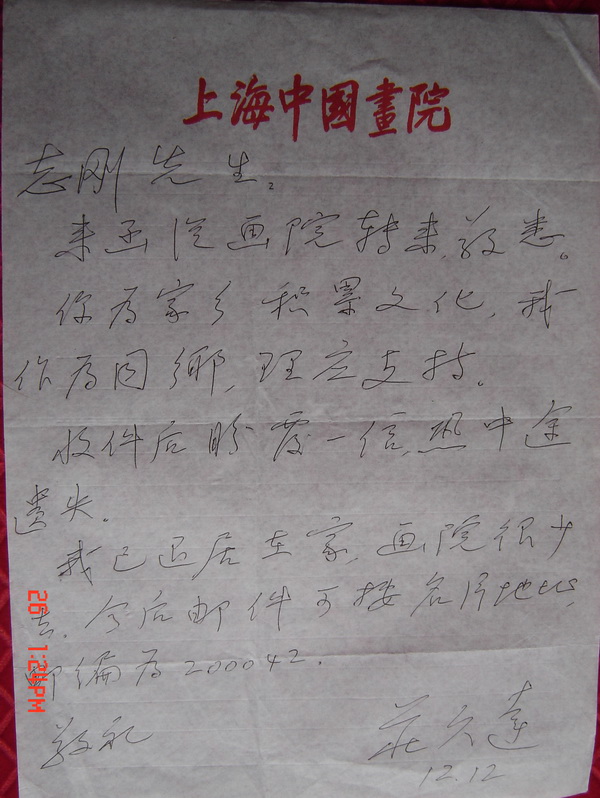 上海中國畫院
志刚先生：
来函从画院转来，敬悉。
你为家乡积累文化，我
作为同乡，理应支持。
收件后盼覆一信，恐中途
遗失。
我已退居在家，画院很少
去，今后邮件可按名片地址，
邮编为200042.
敬礼
莊久達
12.12
26 1:24PM